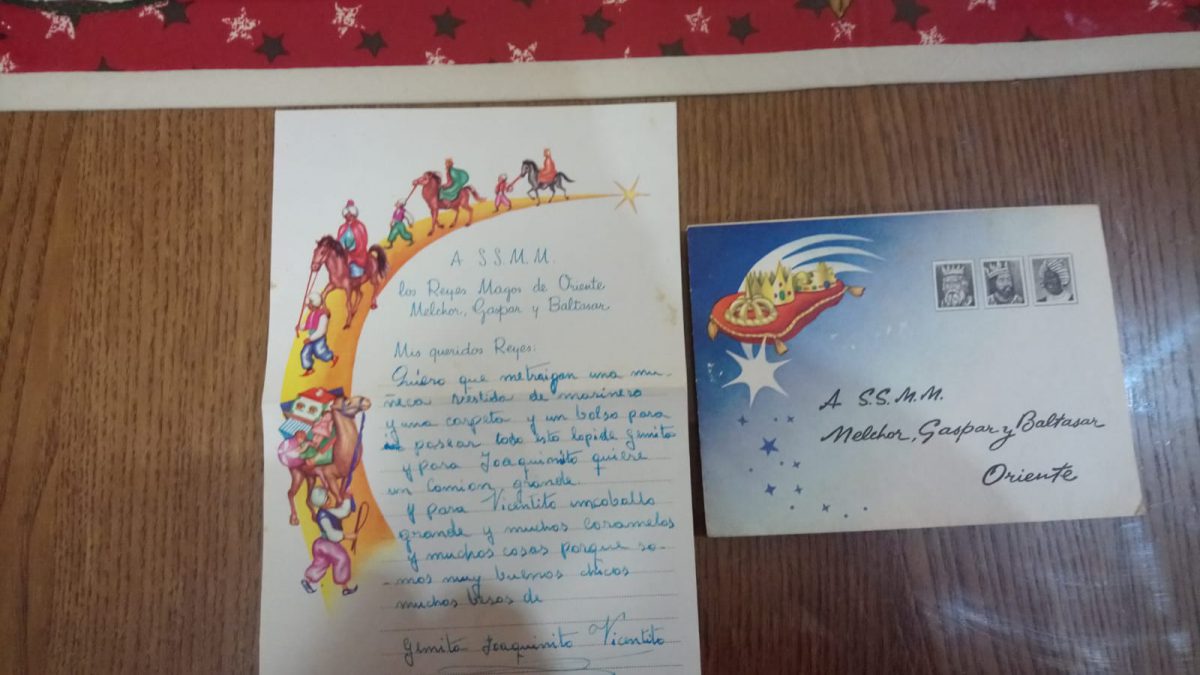 A S.S.M.M.
los Reyes Magos de Oriente
Melchor, Gaspar y Baltasar
Mis queridos Reyes:
Quiero que metraigan una mu-
ñeca vestida de marinero
y una carpeta y un bolso para
pasear todo esto lopide Gemita
y para Joaquinito quiere
un camion grande.
y para Vicentito uncaballo
grande y muchos caramelos
y muchas cosas porque so-
-mos muy buenos chicos
muchos besos de
Gemita Joaquinito Vicentito
A S.S.M.M.
Melchor, Gaspar y Baltasar
Oriente